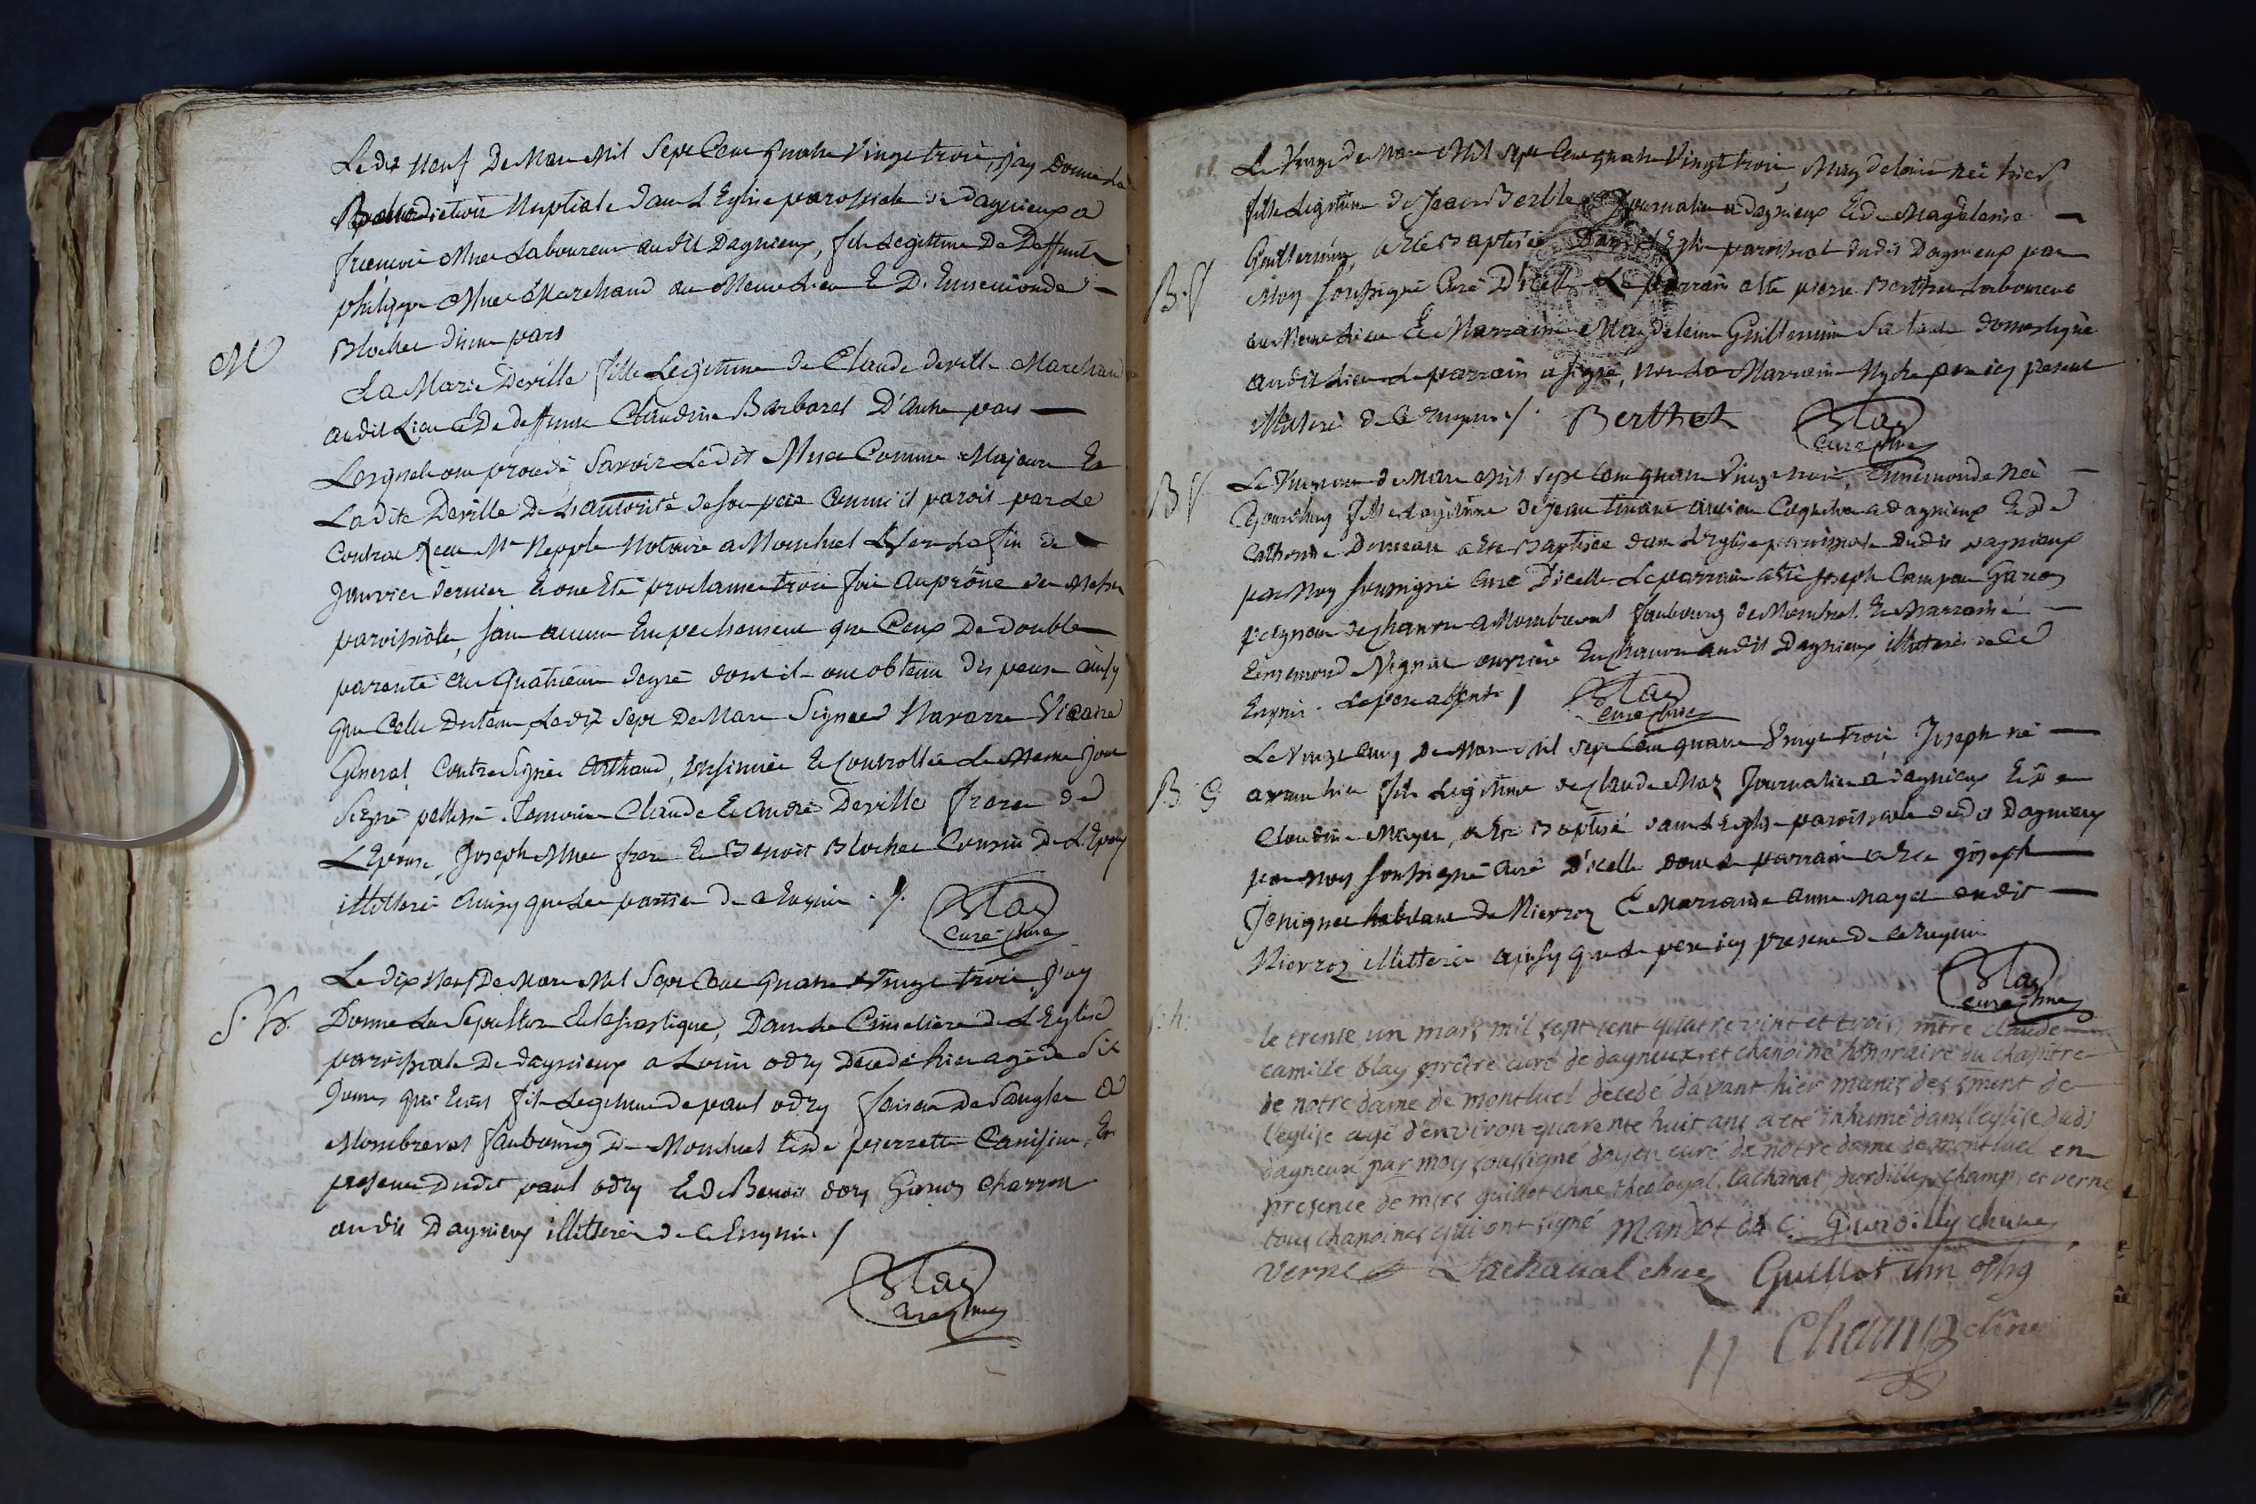 Le dix Neuf De Mars Mil Sept Cent quatre Vingt trois j'ay Donné La
Benediction Nuptiale dans L'Eglise paroissiale de dagnieux a
francois Laboureur audit Dagnieux, fils Legitime De Deffunts
philippe Marchand au Meme Lieu Et D'Ennemonde
Blochet d'une part
M
Et a Marie Deville fille Legitime de Claude deville Marchand
audit Lieu Et De deffunte Claudine Barbaret D'autre part
Lesquels ont procedé Savoir Ledit Comme Majeur Et
Ladite Deville De L'autorité de son pere Comme il paroit par Le
Contrat Recu Me Nepple Notaire a Montluel Sur La fin de
Janvier dernier Et ont Eté proclamés trois fois au prône des Messes
paroissiales, sans aucun Empechement que Ceux De double
parenté au Quatrieme degré dont il ont obtenu dispense ainsy
que Celle du tems Le dix sept De Mars Signées Navarre Vicaire
General, Contre Signée Arthaud, insinuée Et Controllée Le Meme jour
Signé . temoins Claude Et André Deville freres de
L'Epouse, Joseph frere Et Benoit Blochet Cousin De L'Epoux
illitterés ainsy que Les parties de ce Enquis ./.
Blay
Curé
Le dix Neuf De Mars Mil Sept Cent quatre Vingt trois j'ay
S. h.
Donné La Sepulture Eclesiastique, Dans Le Cimetiere de L'Eglise
paroissiale De dagnieux a Louis odry Decedé hier agé de Six
Jours qui Etoit fils Legitime de paul odry faiseur De Sangles a
Montbrevet faubourg De Montluel Et de pierrette Et
presence Dudit paul odry Et de Benoit Garcon Charron
audit Dagnieux illitterés de ce Enquis /
Blay
Curé
Le Vingt de Mars Mil sept Cent quatre Vingt trois, Magdelaine née hier
fille Legitime de Jean Berthet Journalier a dagnieux Et de Magdelaine
Guillermin, a Eté Baptisée Dans L'Eglise paroissial dudit Dagnieux par
B. f
Moy soussigné Curé D'icelle Le parrain a Eté pierre Berthet Laboureur
au Meme Lieu Et Marraine Magdeleine Guillermin Sa tante domestique
audit Lieu Le parrain a signé, Non La Marraine Ny Le pere icy present
illiterés de Ce Enquis /. Berthet Blay
Curé
B f
Le Vingt un de Mars Mil sept Cent quatre Vingt trois, Ennemonde née
aujourdhuy fille Legitime de Jean Cloquetier a dagnieux Et de
Catherine a Eté Baptisée dans L'Eglise paroissiale dudit Dagnieux
par Moy soussigné Curé D'icelle Le parrain a Eté Joseph Garcon
peigneur de Chanvre a Montbrevet faubourg de Montluel Et Marraine
Ennemonde ouvriere En Chanvre audit Dagnieux, illiterés de Ce
Enquis . Le pere absent / Blay
Curé
Le Vingt Cinq De Mars Mil sept Cent quatre Vingt trois Joseph né
B. G
avant hier fils Legitime de Claude Journalier a dagnieux Et de
Claudine Mayet, a Eté Baptisé dans L'Eglise paroissiale dudit Dagnieux
par Moy soussigné Curé D'icelle dont Le parrain a Eté joseph
habitant de Nievroz Et Marraine anne Mayet audit
Nievroz illitterés ainsy que Le pere icy present de Ce Enquis
Blay
Curé
s. h.
le trente un mars mil sept cent quatre vint et trois, mtre claude
camille blay prêtre curé de dagneux et chanoine honoraire du chapitre
de notre dame de montluel décedé davant hier munis des smens de
l'eglise agé d'environ quarente huit ans a eté inhumé dans l'eglise dudt
dagneux par moy soussigné doyen curé de notre dame de montluel en
presence de mrs guillot chne theologal, lachanal, durdilly, champ, et verne
tous chanoines qui ont signé Mandot d. c. Durdilly chne
Verne Lachanal chne Guillot chn
Champ chne